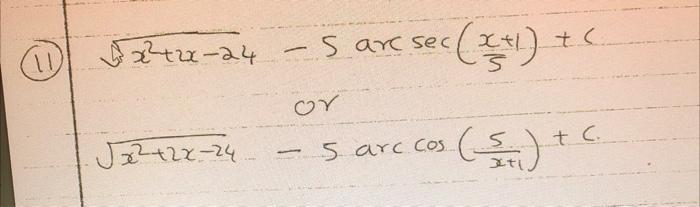 (11) √x²+2x-24 - 5 arc sec(x+1/5) + C
or
√x²+2x-24 - 5 arc cos(5/x+1) + C.